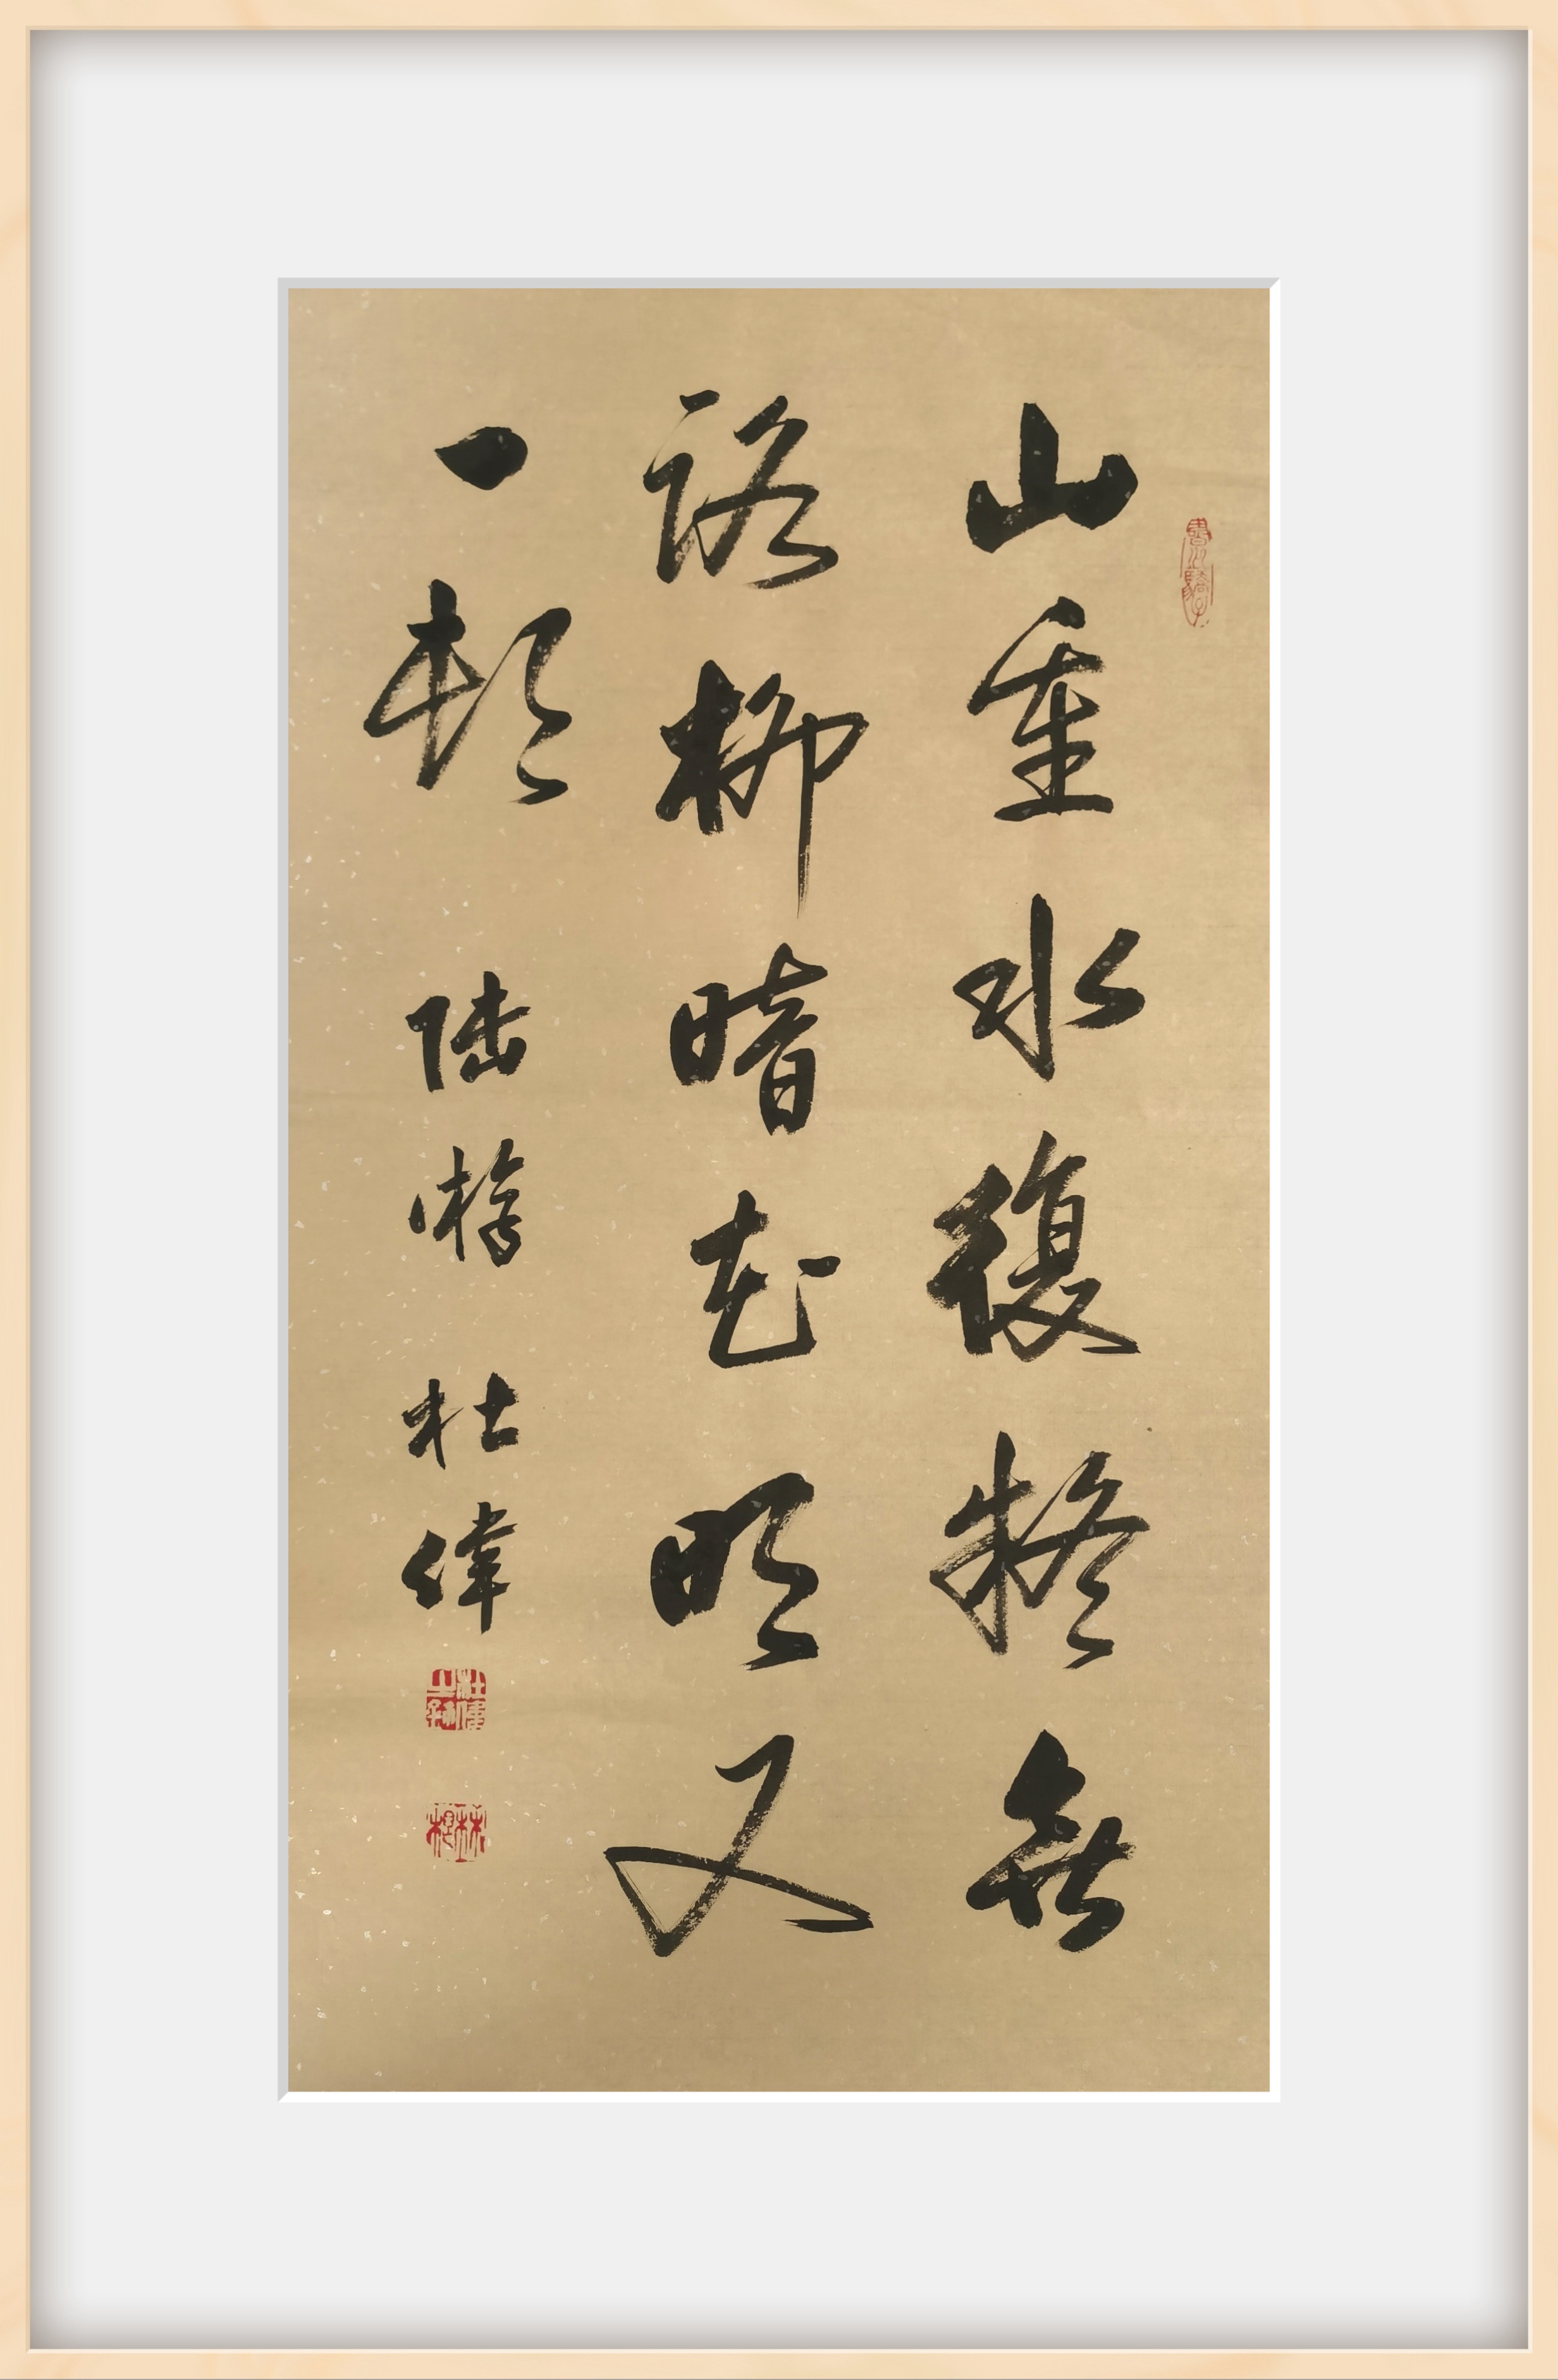 山重水復疑無
路柳暗花明又
一邨 陸游 杜偉